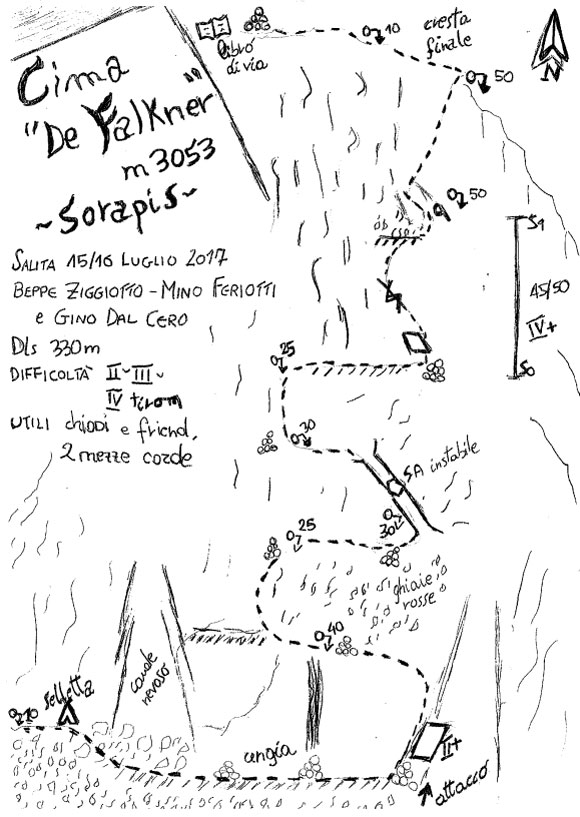 Cima
"De Falkner"
m 3053
~Sorapis~
SALITA 15/16 LUGLIO 2017
BEPPE ZIGGIOTTO - MINO FERIOTTI
e GINO DAL CERO
Dls 330m
DIFFICOLTÀ II - III -
IV + 
UTILI chiodi e friend,
2 mezze corde
libro
di via
10
cresta
finale
N
50
50
S1
45/50
IV+
S0
25
30
SA instabile
30
25
ghiaie
rosse
40
canale
nevoso
selletta
cengia
II+
attacco